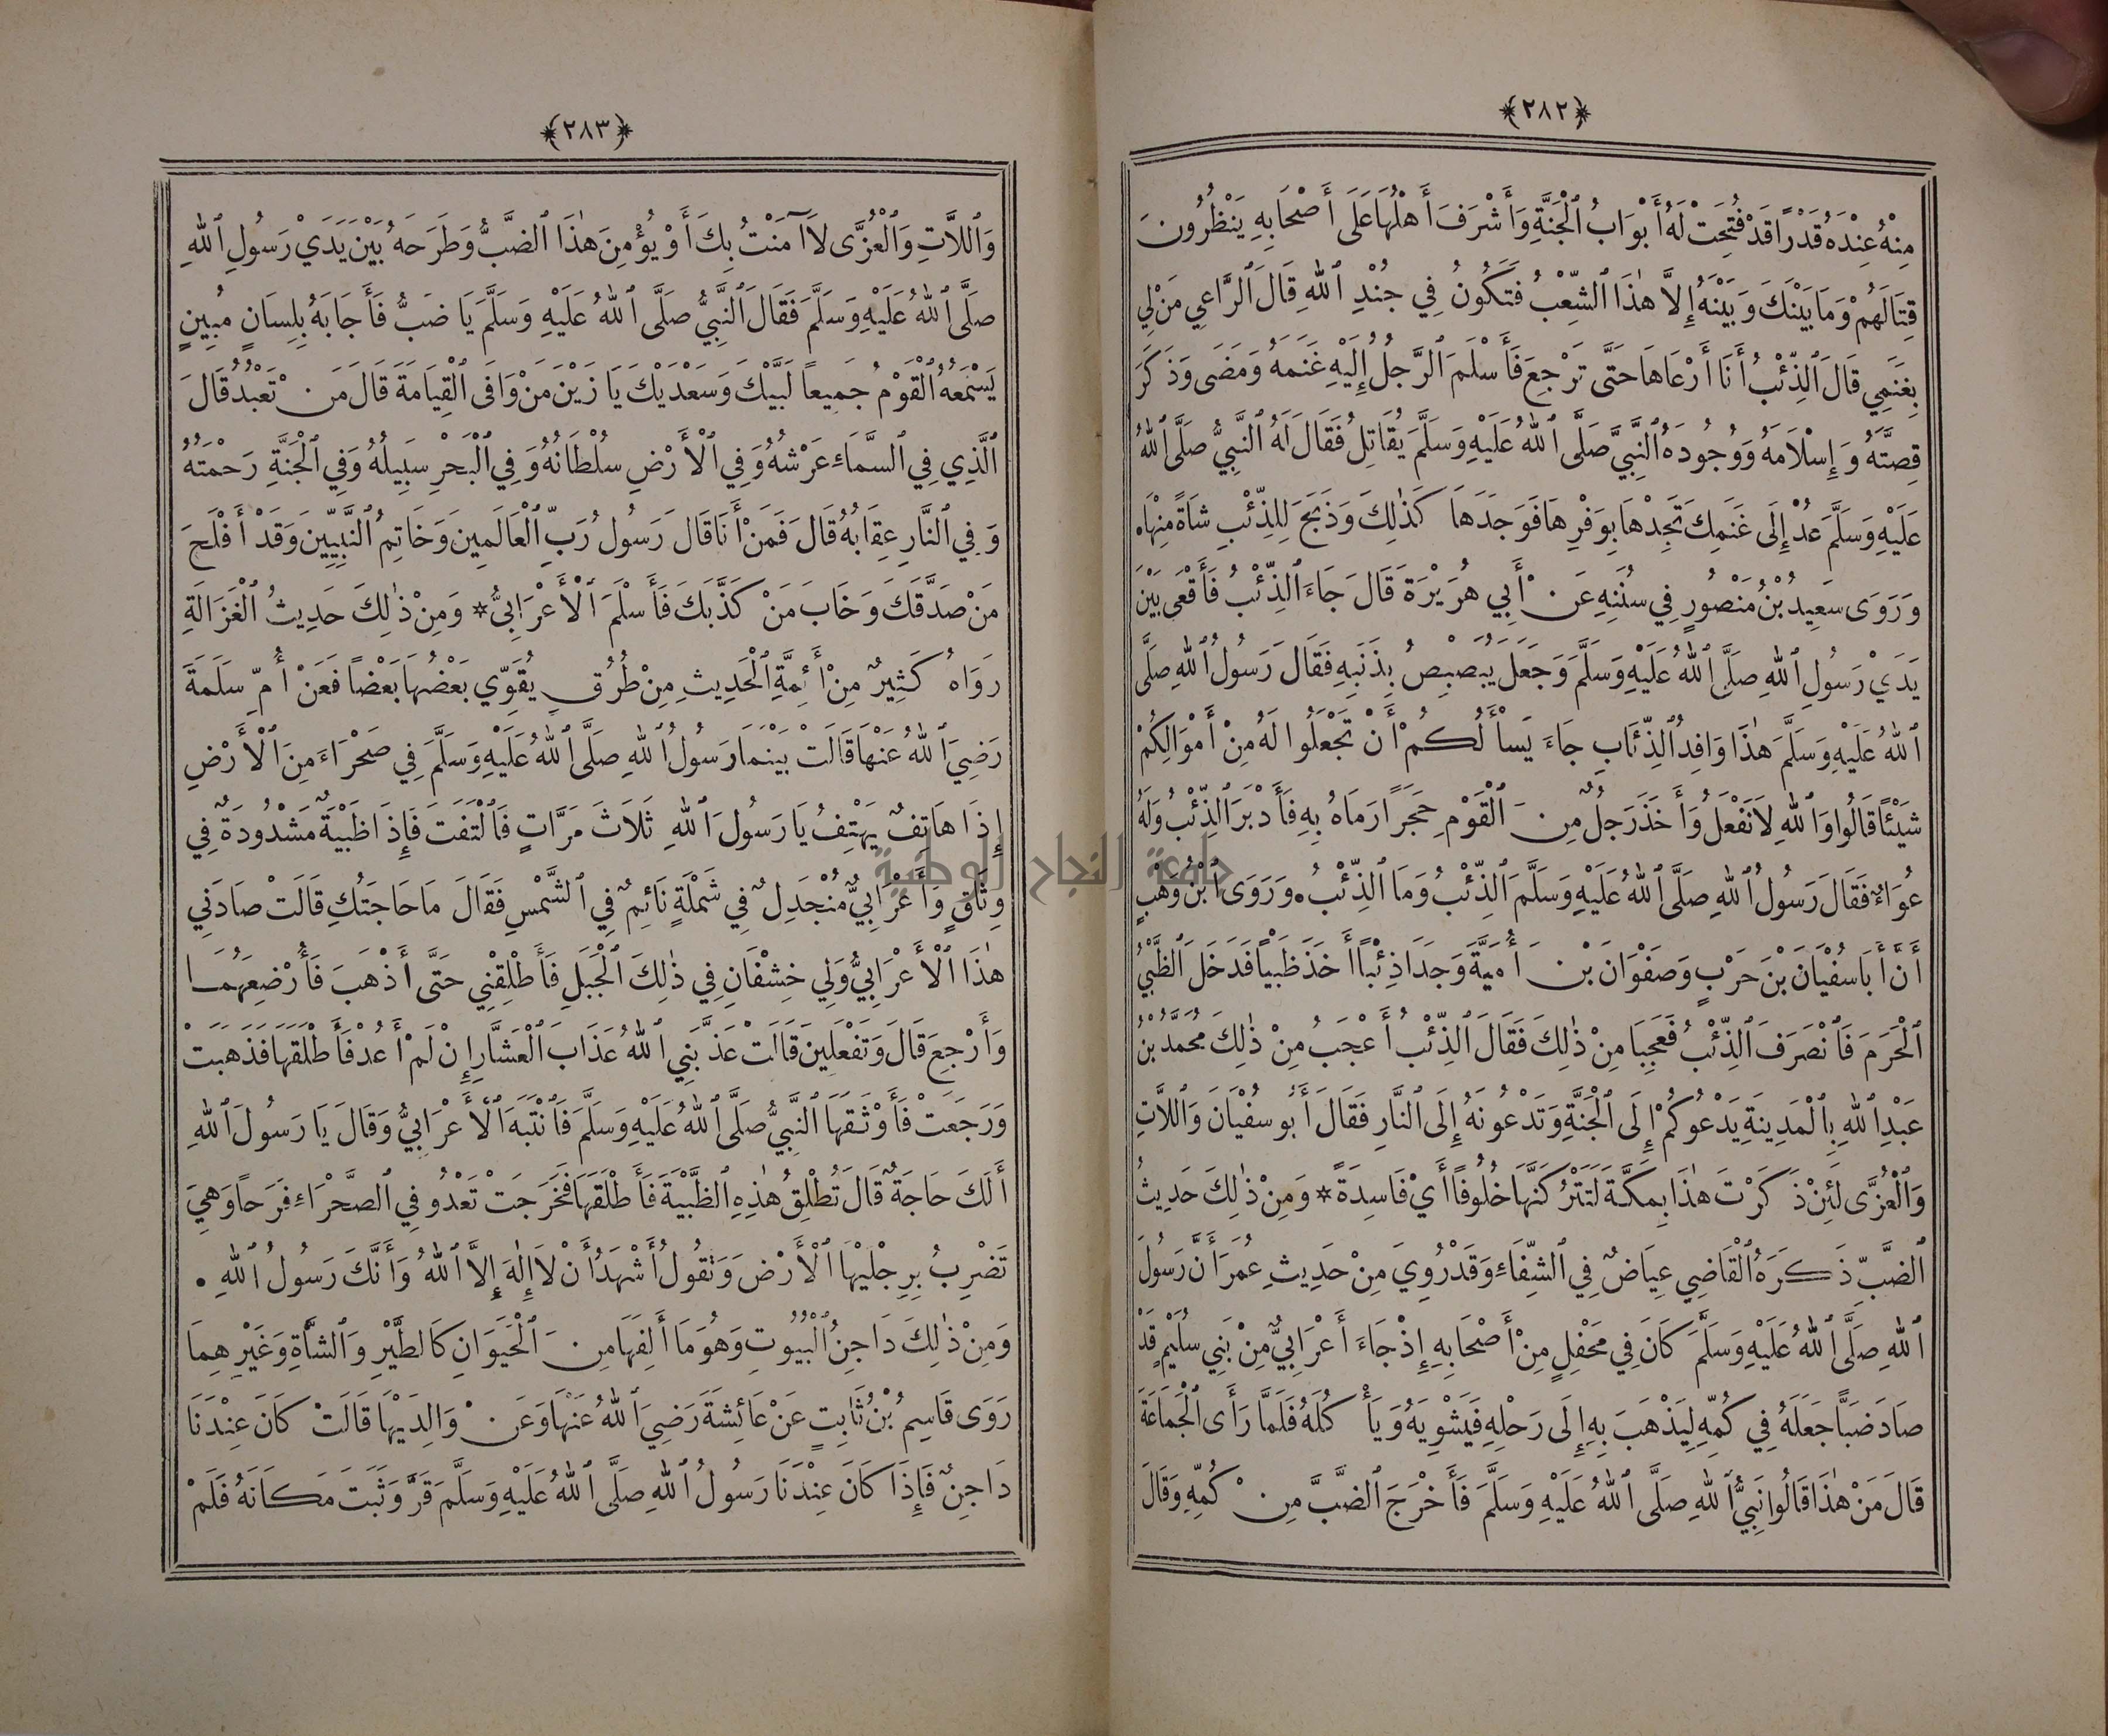 ﴿٢٨٢﴾
مِنْهُ عِنْدَهُ قَدْرًا قَدْ فُتِحَتْ لَهُ أَبْوَابُ ٱلْجَنَّةِ وَأَشْرَفَ أَهْلُهَا عَلَى أَصْحَابِهِ يَنْظُرُونَ
قِتَالَهُمْ وَمَا بَيْنَكَ وَبَيْنَهُ إِلاَّ هٰذَا ٱلشِّعْبُ فَتَكُونُ فِي جُنْدِ ٱللهِ قَالَ ٱلرَّاعِي مَنْ لِي
بِغَنَمِي قَالَ ٱلذِّئْبُ أَنَا أَرْعَاهَا حَتَّى تَرْجِعَ فَأَسْلَمَ ٱلرَّجُلُ إِلَيْهِ غَنَمَهُ وَمَضَى وَذَكَرَ
قِصَّتَهُ وَإِسْلاَمَهُ وَوُجُودَهُ ٱلنَّبِيَّ صَلَّى ٱللهُ عَلَيْهِ وَسَلَّمَ يُقَاتِلُ فَقَالَ لَهُ ٱلنَّبِيُّ صَلَّى ٱللهُ
عَلَيْهِ وَسَلَّمَ عُدْ إِلَى غَنَمِكَ تَجِدْهَا بِوَفْرِهَا فَوَجَدَهَا كَذٰلِكَ وَذَبَحَ لِلذِّئْبِ شَاةً مِنْهَا ه
وَرَوَى سَعِيدُ بْنُ مَنْصُورٍ فِي سُنَنِهِ عَنْ أَبِي هُرَيْرَةَ قَالَ جَاءَ ٱلذِّئْبُ فَأَقْعَى بَيْنَ
يَدَيْ رَسُولِ ٱللهِ صَلَّى ٱللهُ عَلَيْهِ وَسَلَّمَ وَجَعَلَ يُبَصْبِصُ بِذَنَبِهِ فَقَالَ رَسُولُ ٱللهِ صَلَّى
ٱللهُ عَلَيْهِ وَسَلَّمَ هٰذَا وَافِدُ ٱلذِّئَابِ جَاءَ يَسْأَلُكُمْ أَنْ تَجْعَلُوا لَهُ مِنْ أَمْوَالِكُمْ
شَيْئًا قَالُوا وَٱللهِ لاَ نَفْعَلُ وَأَخَذَ رَجُلٌ مِنَ ٱلْقَوْمِ حَجَرًا رَمَاهُ بِهِ فَأَدْبَرَ ٱلذِّئْبُ وَلَهُ
عُوَاءٌ فَقَالَ رَسُولُ ٱللهِ صَلَّى ٱللهُ عَلَيْهِ وَسَلَّمَ ٱلذِّئْبُ وَمَا ٱلذِّئْبُ . وَرَوَى ٱبْنُ وَهْبٍ
أَنَّ أَبَا سُفْيَانَ بْنَ حَرْبٍ وَصَفْوَانَ بْنَ أُمَيَّةَ وَجَدَا ذِئْبًا أَخَذَ ظَبْيًا فَدَخَلَ ٱلظَّبْيُ
ٱلْحَرَمَ فَٱنْصَرَفَ ٱلذِّئْبُ فَعَجِبَا مِنْ ذٰلِكَ فَقَالَ ٱلذِّئْبُ أَعْجَبُ مِنْ ذٰلِكَ مُحَمَّدُ بْنُ
عَبْدِ ٱللهِ بِٱلْمَدِينَةِ يَدْعُوكُمْ إِلَى ٱلْجَنَّةِ وَتَدْعُونَهُ إِلَى ٱلنَّارِ فَقَالَ أَبُو سُفْيَانَ وَٱللاَّتِ
وَٱلْعُزَّى لَئِنْ ذَكَرْتَ هٰذَا بِمَكَّةَ لَتَتْرُكَنَّهَا خُلُوفًا أَيْ فَاسِدَةً * وَمِنْ ذٰلِكَ حَدِيثُ
ٱلضَّبِّ ذَكَرَهُ ٱلْقَاضِي عِيَاضٌ فِي ٱلشِّفَاءِ وَقَدْ رُوِيَ مِنْ حَدِيثِ عُمَرَ أَنَّ رَسُولَ
ٱللهِ صَلَّى ٱللهُ عَلَيْهِ وَسَلَّمَ كَانَ فِي مَحْفِلٍ مِنْ أَصْحَابِهِ إِذْ جَاءَ أَعْرَابِيٌّ مِنْ بَنِي سُلَيْمٍ قَدْ
صَادَ ضَبًّا جَعَلَهُ فِي كُمِّهِ لِيَذْهَبَ بِهِ إِلَى رَحْلِهِ فَيَشْوِيَهُ وَيَأْكُلَهُ فَلَمَّا رَأَى ٱلْجَمَاعَةَ
قَالَ مَنْ هٰذَا قَالُوا نَبِيُّ ٱللهِ صَلَّى ٱللهُ عَلَيْهِ وَسَلَّمَ فَأَخْرَجَ ٱلضَّبَّ مِنْ كُمِّهِ وَقَالَ
﴿٢٨٣﴾
وَٱللاَّتِ وَٱلْعُزَّى لاَ آمَنْتُ بِكَ أَوْ يُؤْمِنَ هٰذَا ٱلضَّبُّ وَطَرَحَهُ بَيْنَ يَدَيْ رَسُولِ ٱللهِ
صَلَّى ٱللهُ عَلَيْهِ وَسَلَّمَ فَقَالَ ٱلنَّبِيُّ صَلَّى ٱللهُ عَلَيْهِ وَسَلَّمَ يَا ضَبُّ فَأَجَابَهُ بِلِسَانٍ مُبِينٍ
يَسْمَعُهُ ٱلْقَوْمُ جَمِيعاً لَبَّيْكَ وَسَعْدَيْكَ يَا زَيْنَ مَنْ وَافَى ٱلْقِيَامَةَ قَالَ مَنْ تَعْبُدُ قَالَ
ٱلَّذِي فِي ٱلسَّمَاءِ عَرْشُهُ وَفِي ٱلْأَرْضِ سُلْطَانُهُ وَفِي ٱلْبَحْرِ سَبِيلُهُ وَفِي ٱلْجَنَّةِ رَحْمَتُهُ
وَفِي ٱلنَّارِ عِقَابُهُ قَالَ فَمَنْ أَنَا قَالَ رَسُولُ رَبِّ ٱلْعَالَمِينَ وَخَاتِمُ ٱلنَّبِيِّينَ وَقَدْ أَفْلَحَ
مَنْ صَدَّقَكَ وَخَابَ مَنْ كَذَّبَكَ فَأَسْلَمَ ٱلْأَعْرَابِيُّ * وَمِنْ ذٰلِكَ حَدِيثُ ٱلْغَزَالَةِ
رَوَاهُ كَثِيرٌ مِنْ أَئِمَّةِ ٱلْحَدِيثِ مِنْ طُرُقٍ يُقَوِّي بَعْضُهَا بَعْضًا فَعَنْ أُمِّ سَلَمَةَ
رَضِيَ ٱللهُ عَنْهَا قَالَتْ بَيْنَمَا رَسُولُ ٱللهِ صَلَّى ٱللهُ عَلَيْهِ وَسَلَّمَ فِي صَحْرَاءَ مِنَ ٱلْأَرْضِ
إِذَا هَاتِفٌ يَهْتِفُ يَا رَسُولَ ٱللهِ ثَلاَثَ مَرَّاتٍ فَٱلْتَفَتَ فَإِذَا ظَبْيَةٌ مَشْدُودَةٌ فِي
وِثَاقٍ وَأَعْرَابِيٌّ مُنْجَدِلٌ فِي شَمْلَةٍ نَائِمٌ فِي ٱلشَّمْسِ فَقَالَ مَا حَاجَتُكِ قَالَتْ صَادَنِي
هٰذَا ٱلْأَعْرَابِيُّ وَلِي خِشْفَانِ فِي ذٰلِكَ ٱلْجَبَلِ فَأَطْلِقْنِي حَتَّى أَذْهَبَ فَأُرْضِعَهُمَا
وَأَرْجِعَ قَالَ وَتَفْعَلِينَ قَالَتْ عَذَّبَنِي ٱللهُ عَذَابَ ٱلْعَشَّارِ إِنْ لَمْ أَعُدْ فَأَطْلَقَهَا فَذَهَبَتْ
وَرَجَعَتْ فَأَوْثَقَهَا ٱلنَّبِيُّ صَلَّى ٱللهُ عَلَيْهِ وَسَلَّمَ فَٱنْتَبَهَ ٱلْأَعْرَابِيُّ وَقَالَ يَا رَسُولَ ٱللهِ
أَلَكَ حَاجَةٌ قَالَ تُطْلِقُ هٰذِهِ ٱلظَّبْيَةَ فَأَطْلَقَهَا فَخَرَجَتْ تَعْدُو فِي ٱلصَّحْرَاءِ فَرَحًا وَهِيَ
تَضْرِبُ بِرِجْلَيْهَا ٱلْأَرْضَ وَتَقُولُ أَشْهَدُ أَنْ لاَ إِلٰهَ إِلاَّ ٱللهُ وَأَنَّكَ رَسُولُ ٱللهِ .
وَمِنْ ذٰلِكَ دَاجِنُ ٱلْبُيُوتِ وَهُوَ مَا أَلِفَهَا مِنَ ٱلْحَيَوَانِ كَٱلطَّيْرِ وَٱلشَّاةِ وَغَيْرِهِمَا
رَوَى قَاسِمُ بْنُ ثَابِتٍ عَنْ عَائِشَةَ رَضِيَ ٱللهُ عَنْهَا وَعَنْ وَالِدَيْهَا قَالَتْ كَانَ عِنْدَنَا
دَاجِنٌ فَإِذَا كَانَ عِنْدَنَا رَسُولُ ٱللهِ صَلَّى ٱللهُ عَلَيْهِ وَسَلَّمَ قَرَّ وَثَبَتَ مَكَانَهُ فَلَمْ
جامعة النجاح الوطنية